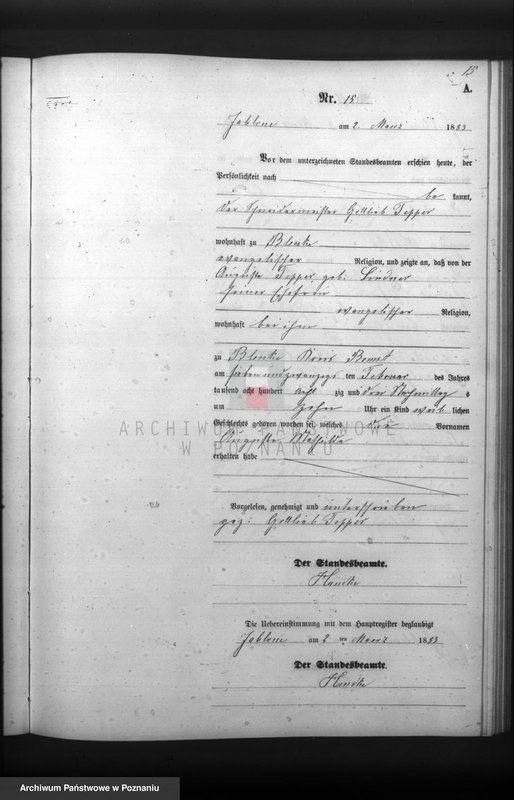 15
A.
Nr. 15
Jablone am 2. Maerz 1883
Vor dem unterzeichneten Standesbeamten erschien heute, der
Persönlichkeit nach
be kannt,
der Schneidermeister Gottlieb Tepper
wohnhaft zu Blenke
evangelischer Religion, und zeigte an, daß von der
Auguste Tepper geb: Lindner
seiner Ehefrau
evangelischer Religion,
wohnhaft bei ihm
zu Blenke
am sieben und zwanzigs ten Februar des Jahres
tausend acht hundert acht zig und drei Nachmittag s
um Zehn Uhr ein Kind weib lichen
Geschlechts geboren worden sei, welches die Vornamen
Auguste Mathilde
erhalten habe
Vorgelesen, genehmigt und unterschrieben
gez: Gottlieb Tepper
Der Standesbeamte.
Die Uebereinstimmung mit dem Hauptregister beglaubigt
Jablone am 2 ten Maerz 1883
Der Standesbeamte.
ARCHIWUM PAŃSTWOWE
W POZNANIU
Archiwum Państwowe w Poznaniu